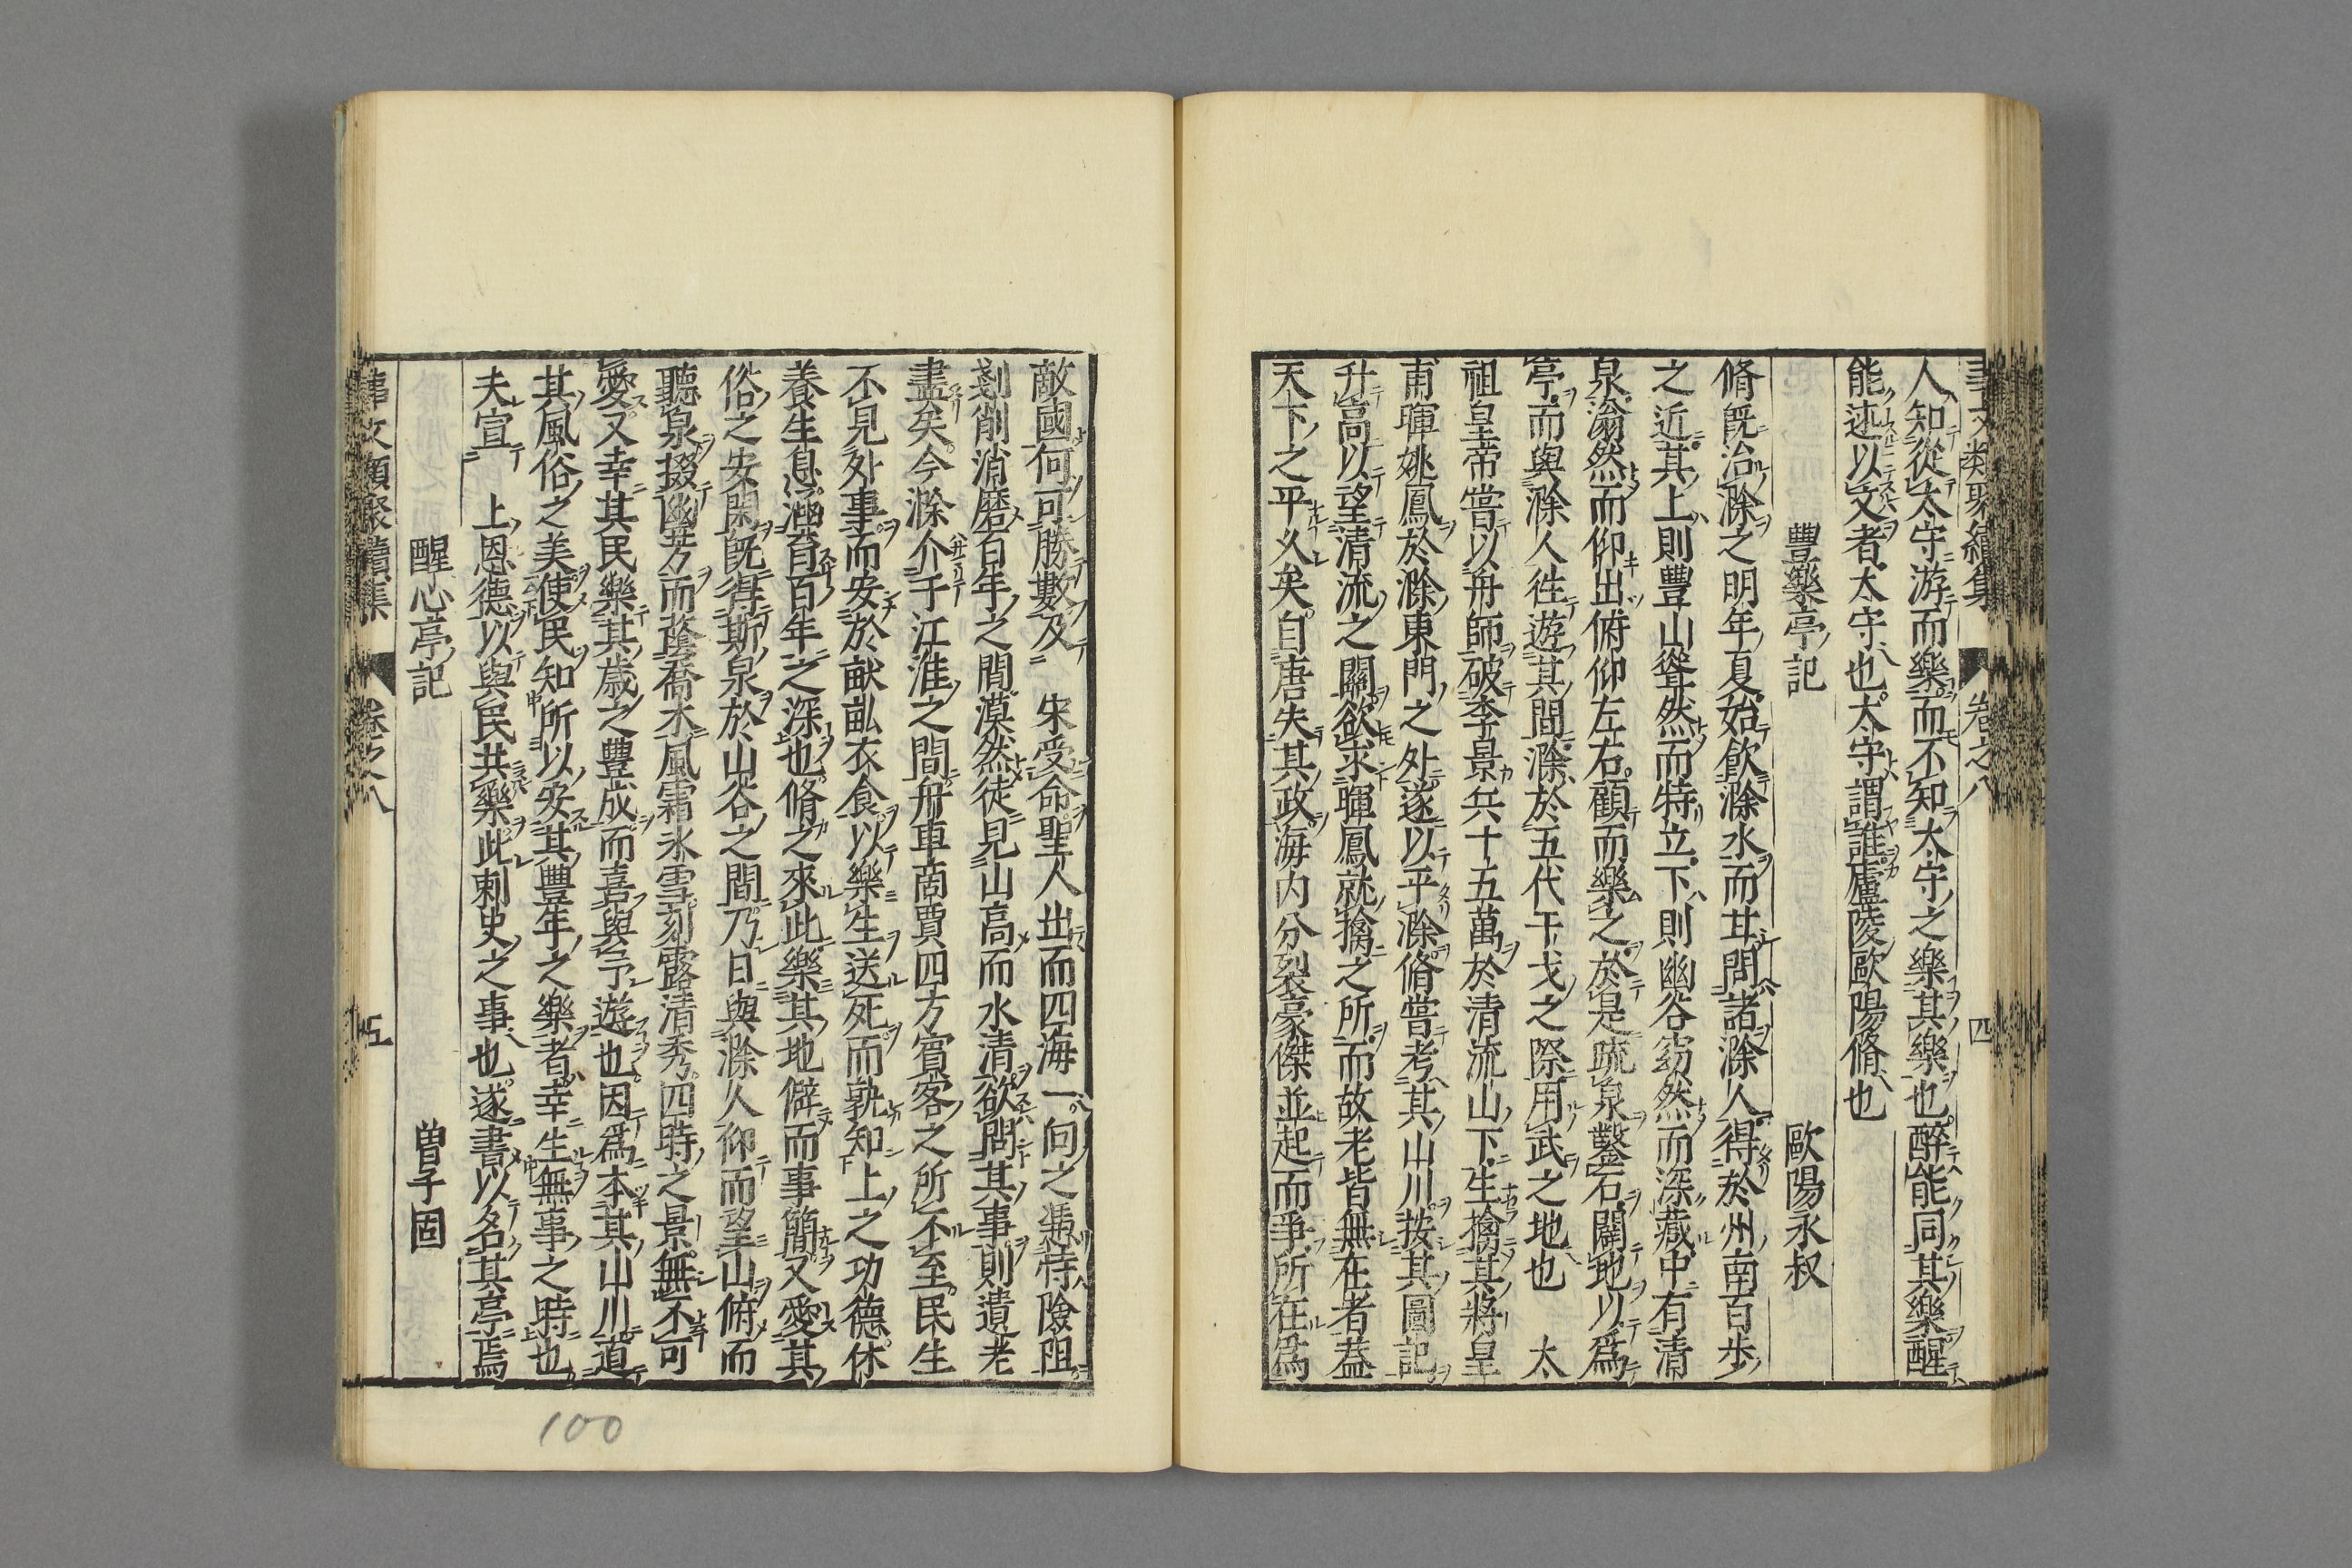 事文類聚續集 卷之八 四
人知從太守游而樂而不知太守之樂其樂也醉能同其樂醒
能述以文者太守也太守謂誰廬陵歐陽脩也
豐樂亭記 歐陽永叔
脩既治滁之明年夏始飲滁水而甘問諸滁人得於州南百步
之近其上則豐山聳然而特立下則幽谷窈然而深藏中有清
泉滃然而仰出俯仰左右顧而樂之於是疏泉鑿石闢地以爲
亭而與滁人往遊其間滁於五代干戈之際用武之地也 太
祖皇帝嘗以舟師破李景兵十五萬於清流山下生擒其將皇
甫暉姚鳳於滁東門之外遂以平滁脩嘗考其山川按其圖記
升高以望清流之關欲求暉鳳就擒之所而故老皆無在者蓋
天下之平久矣自唐失其政海內分裂豪傑並起而爭所在爲
敵國何可勝數及 宋受命聖人出而四海一向之馮恃險阻
剗削消磨百年之間漠然徒見山高而水清欲問其事則遺老
盡矣今滁介于江淮之間舟車商賈四方賓客之所不至民生
不見外事而安於畎畝衣食以樂生送死而孰知上之功德休
養生息涵育百年之深也脩之來此樂其地僻而事簡又愛其
俗之安閑既得斯泉於山谷之間乃日與滁人仰而望山俯而
聽泉掇幽芳而蔭喬木風霜氷雪刻露清秀四時之景無不可
愛又幸其民樂其歲之豐成而喜與予遊也因爲本其山川道
其風俗之美使民知所以安其豐年之樂者幸生無事之時也
夫宣 上恩德以與民共樂此刺史之事也遂書以名其亭焉
醒心亭記 曽子固
事文類聚續集 卷之八 五
100